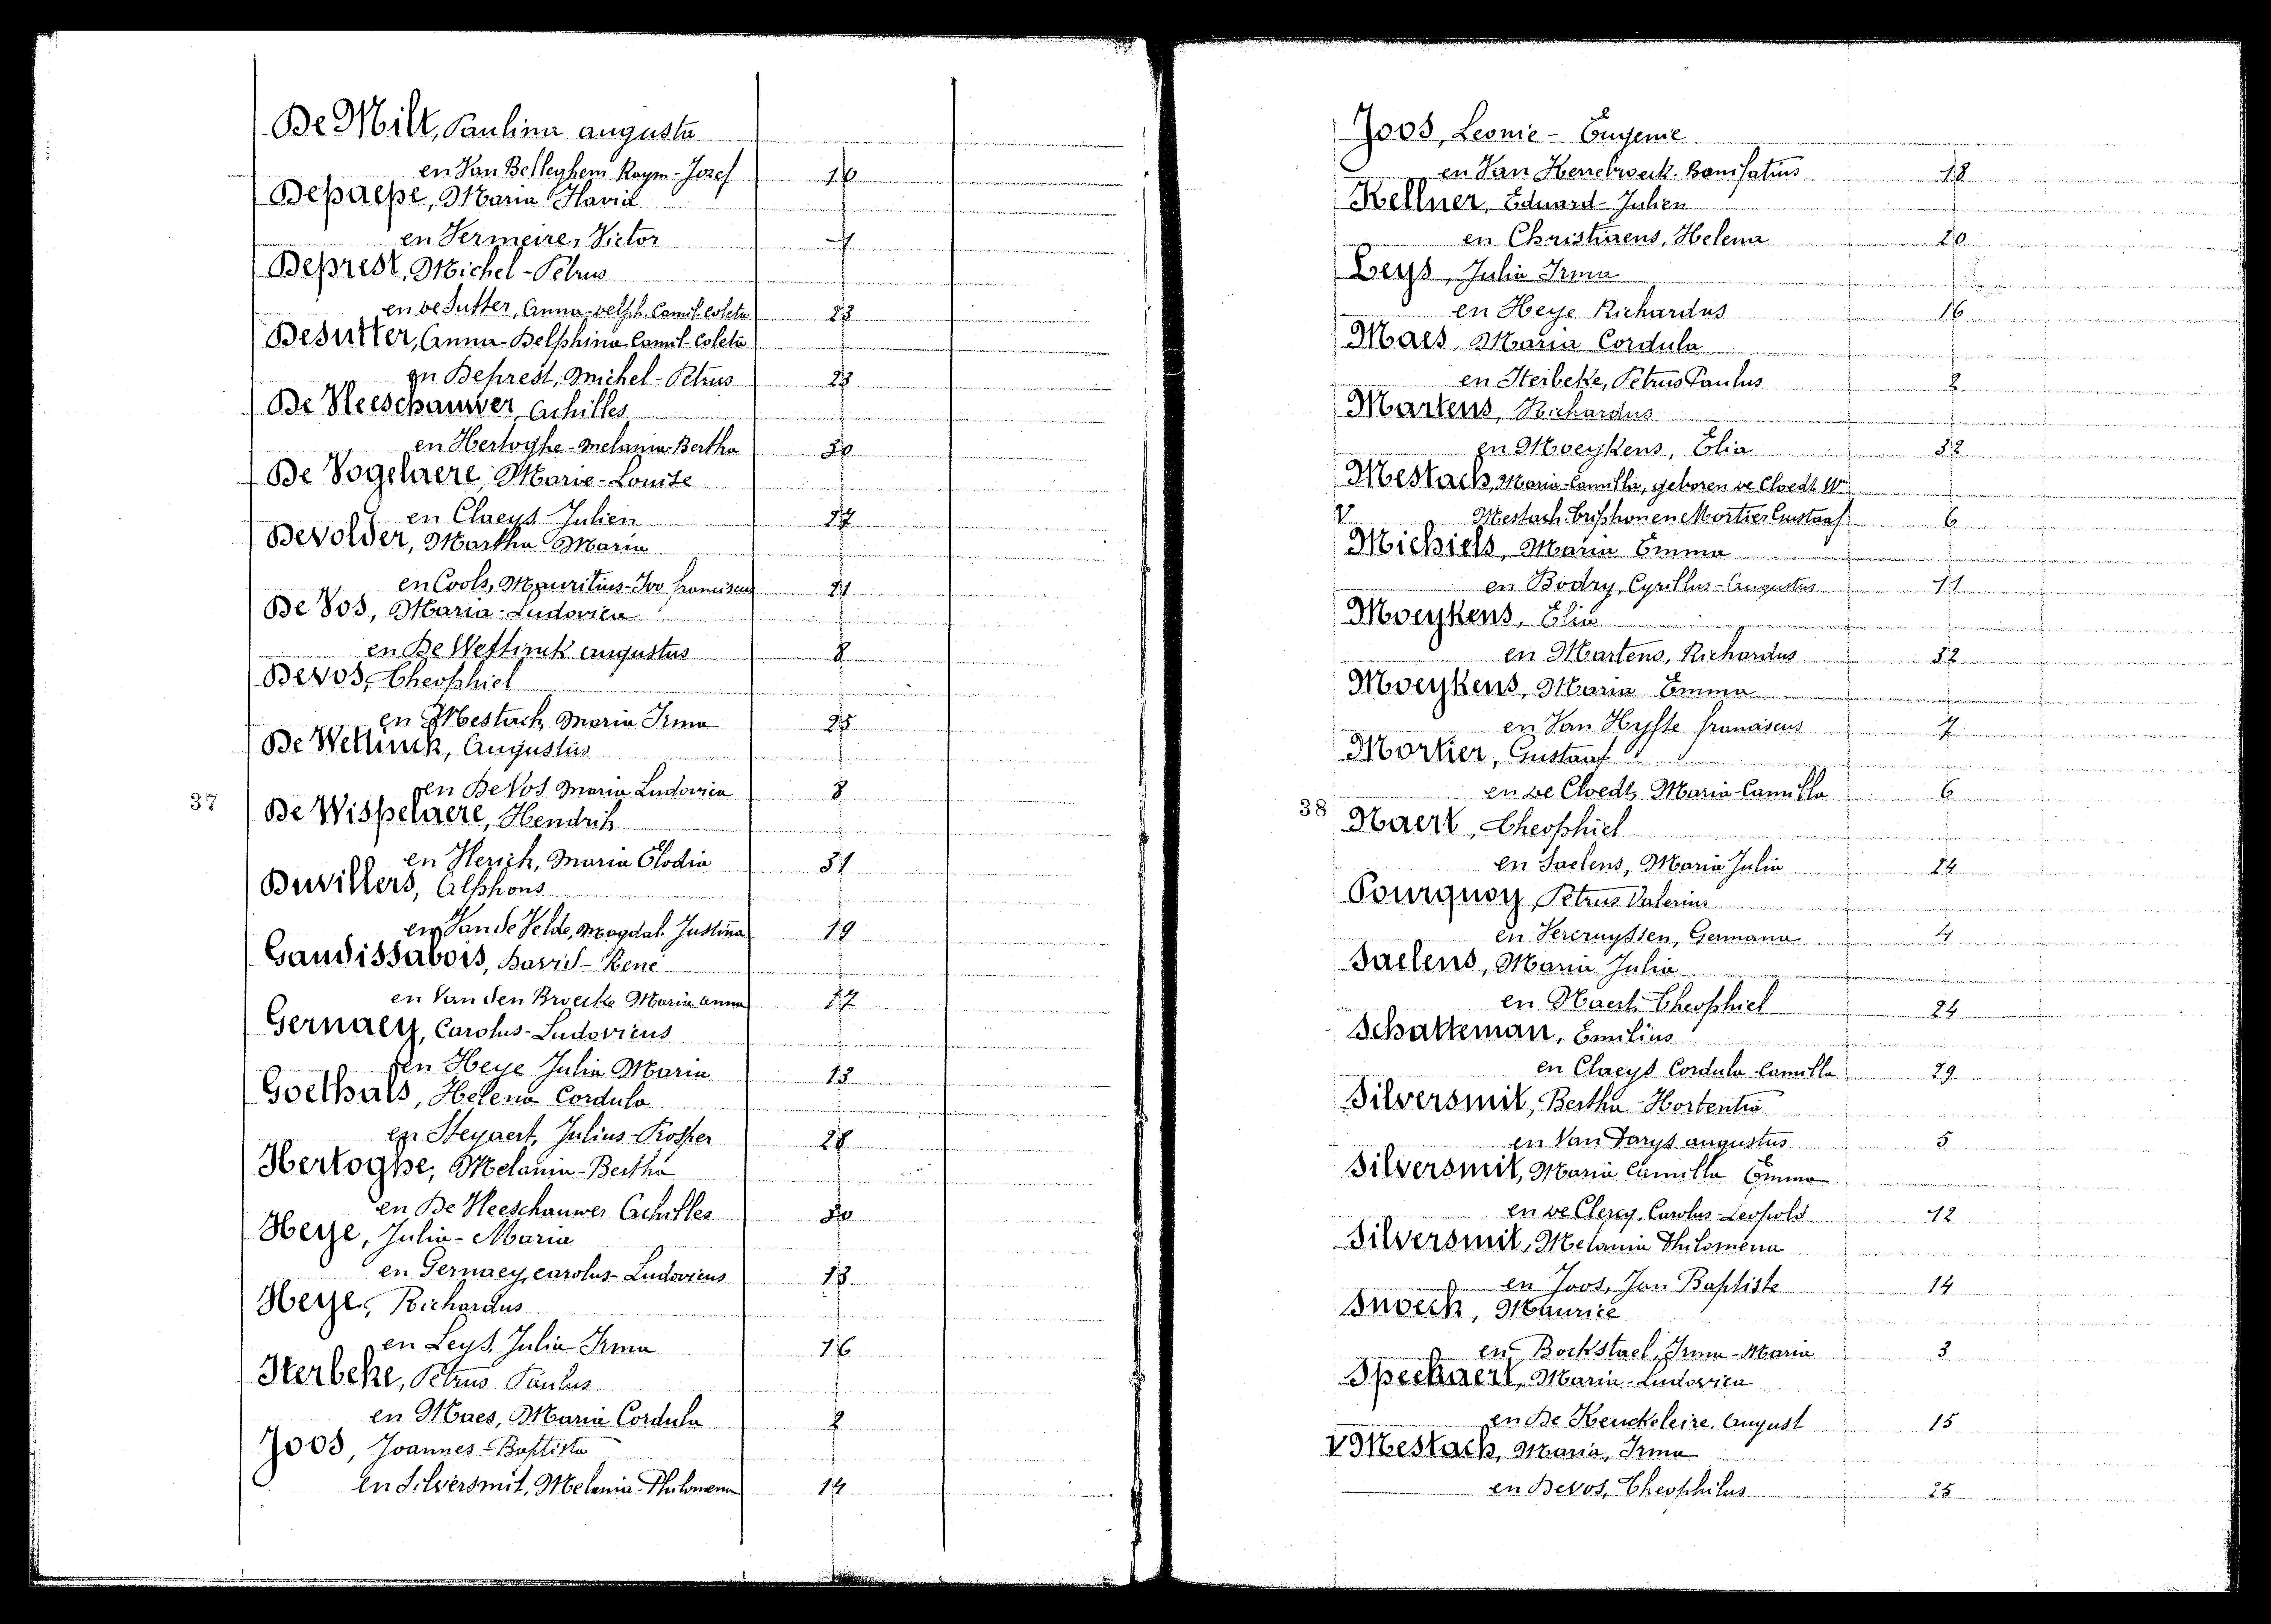 De Milt, Paulina augusta
en Van Belleghem Raym-Jozef 10
Depaepe, Maria Flavia
en Vermeire, Victor 1
Deprest, Michel-Petrus
en de Sutter, Anna-Delph. Camil-Coleta 23
Desutter, Anna-Delphina Camil-Coleta
en Deprest, Michel-Petrus 23
De Vleeschauwer, Achilles
en Hertoghe-Melania-Bertha 30
De Vogelaere, Marie-Louise
en Claeys Julien 27
Devolder, Martha Maria
en Cools, Mauritius-Ivo franciscus 21
De Vos, Maria-Ludovica
en De Wettinck augustus 8
Devos, Theophiel
en Mestach, Maria Irma 25
De Wettinck, Augustus
en De Vos Maria Ludovica 8
37
De Wispelaere, Hendrik
en Herich, Maria Elodia 31
Duvillers, Alphons
en Van de Velde, Magdal. Justina 19
Gaudissabois, David-René
en Van den Broecke Maria anna 17
Gernaey, Carolus-Ludovicus
en Heye Julia Maria 13
Goethals, Helena Cordula
en Steyaert, Julius-Prosper 28
Hertoghe, Melania-Bertha
en De Vleeschauwer Achilles 30
Heye, Julia-Maria
en Gernaey, carolus-Ludovicus 13
Heye, Richardus
en Leys, Julia Irma 16
Iterbeke, Petrus Paulus
en Maes, Maria Cordula 2
Joos, Joannes-Baptista
en Silversmit, Melania-Philomena 14
Joos, Leonie-Eugenie
en Van Kerrebroeck Bonifatius 18
Kellner, Eduard-Julien
en Christiaens, Helena 20
Leys, Julia Irma
en Heye Richardus 16
Maes, Maria Cordula
en Iterbeke, Petrus Paulus 2
Martens, Richardus
en Moeykens, Elia 32
Mestach, Maria-Camilla, geboren de Cloedt We
V Mestach. Triphon en Mortier Gustaaf 6
Michiels, Maria Emma
en Bodry, Cyrillus-Augustus 11
Moeykens, Elia
en Martens, Richardus 32
Moeykens, Maria Emma
en Van Hyfte franciscus 7
Mortier, Gustaaf
en de Cloedt, Maria-Camilla 6
38
Naert, Theophiel
en Saelens, Maria Julia 24
Pourquoy, Petrus Valerius
en Vercruyssen, Germana 4
Saelens, Maria Julia
en Naert, Theophiel 24
Schatteman, Emilius
en Claeys Cordula-Camilla 29
Silversmit, Bertha-Hortentia
en Van Daryt augustus 5
Silversmit, Maria Camilla Emma
en de Clercq, Carolus-Leopold 12
Silversmit, Melania Philomena
en Joos, Jan Baptiste 14
Snoeck, Maurice
en Bockstael, Irma-Maria 3
Speekaert, Maria-Ludovica
en De Keuckeleire, August 15
V Mestach, Maria, Irma
en Devos, Theophilus 25